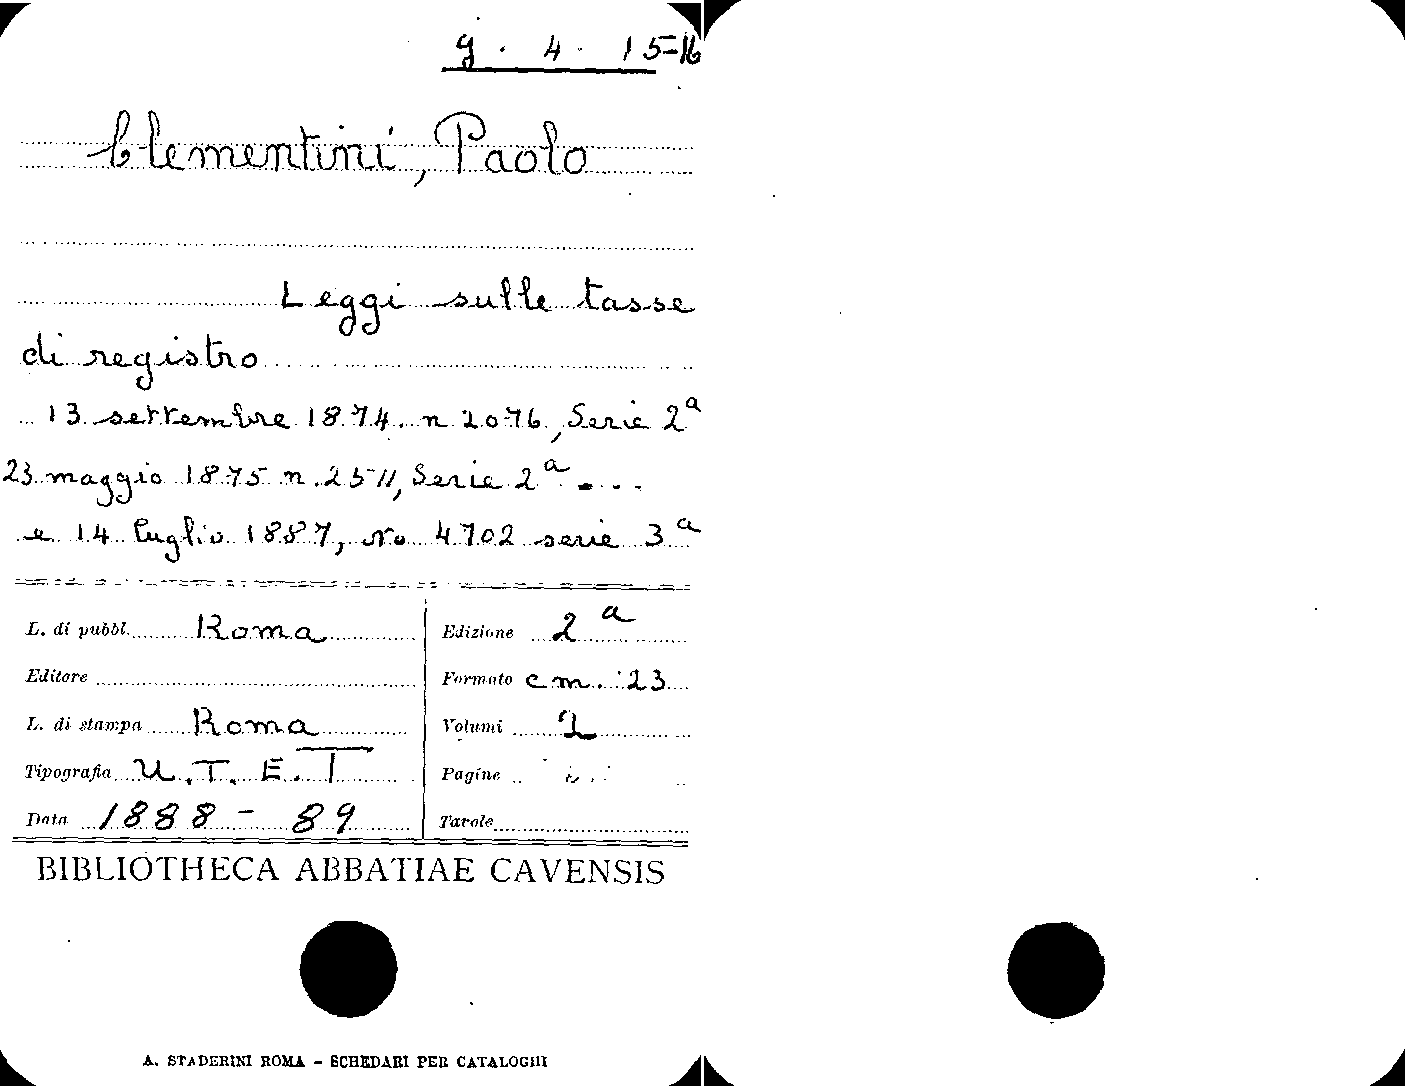 g. 4. 15=16
Clementini, Paolo
Leggi sulle tasse
di registro
13 settembre 1874. n 2076, Serie 2ª
23 maggio 1875 n. 2511, Serie 2ª ....
e 14 luglio 1887, No 4702 serie 3ª
L. di pubbl. Roma
Editore
L. di stampa Roma
Tipografia U.T.E.T
Data 1888-89
Edizione 2ª
Formato cm. 23
Volumi 2
Pagine
Tavole
BIBLIOTHECA ABBATIAE CAVENSIS
A. STADERINI ROMA - SCHEDARI PER CATALOGHI